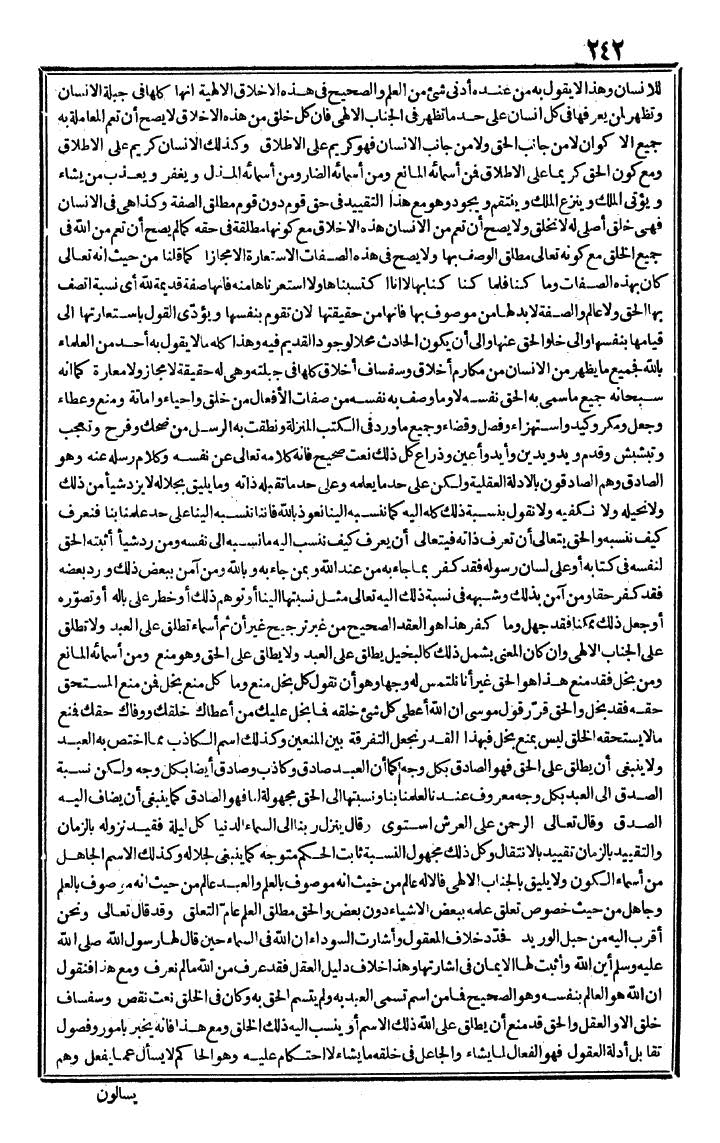 ٢٤٢
للانسان وهذا لا يقول به من عنده أدنى شئ من العلم والصحيح فى هذه الاخلاق الالهية انها كلها فى جبلة الانسان
وتظهر لمن يعرفها فى كل انسان على حد ما تظهر فى الجناب الالهى فان كل خلق من هذه الاخلاق لا يصح أن تعم المعاملة به
جميع الاكوان لا من جانب الحق ولا من جانب الانسان فهو كريم على الاطلاق وكذلك الانسان كريم على الاطلاق
ومع كون الحق كريما على الاطلاق فمن أسمائه المانع ومن أسمائه الضار ومن أسمائه المذل ويغفر ويعذب من يشاء
ويؤتى الملك وينزع الملك وينتقم ويجود وهو مع هذا التقييد فى حق قوم دون قوم مطلق الصفة وكذا هى فى الانسان
فهى خلق أصلى له لا تخلق ولا يصح أن تعم من الانسان هذه الاخلاق مع كونها مطلقة فى حقه كما لم يصح أن تعم من الله فى
جميع الخلق مع كونه تعالى مطلق الوصف بها ولا يصح فى هذه الصفات الاستعارة الا مجازا كما قلنا من حيث انه تعالى
كان بهذه الصفات وما كنا فلما كنا كنا بها لا انا اكتسبناها ولا استعرناها منه فانها صفة قديمة لله أى نسبة اتصف
بها الحق ولا عالم والصفة لا بد لها من موصوف بها فانها من حقيقتها لان تقوم بنفسها ويؤدّى القول باستعارتها الى
قيامها بنفسها والى خلو الحق عنها والى أن يكون الحادث محلا لوجود القديم فيه وهذا كله ما لا يقول به أحد من العلماء
بالله فجميع ما يظهر من الانسان من مكارم أخلاق وسفساف أخلاق كلها فى جبلته وهى له حقيقة لا مجاز ولا معارة كما انه
سبحانه جميع ما سمى به الحق نفسه لا وما وصف به نفسه من صفات الأفعال من خلق واحياء واماتة ومنع وعطاء
وجعل ومكر وكيد واستهزاء وفصل وقضاء وجميع ما ورد فى الكتب المنزلة ونطقت به الرسل من ضحك وفرح وتعجب
وتبشبش وقدم ويد ويدين وأيد وأعين وذراع كل ذلك نعت صحيح فانه كلامه تعالى عن نفسه وكلام رسله عنه وهو
الصادق وهم الصادقون بالادلة العقلية ولكن على حد ما يعلمه وعلى حد ما تقبله ذاته وما يليق بجلاله لا يزد شيأ من ذلك
ولا نحيله ولا نكفيه ولا نقول بنسبة ذلك كله اليه كما ننسبه الينا نعوذ بالله فاننا ننسبه الينا على حد علمنا بنا فنعرف
كيف ننسبه والحق يتعالى أن تعرف ذاته فيتعالى أن يعرف كيف ننسب اليه ما نسبه الى نفسه ومن رد شيأ أثبته الحق
لنفسه فى كتابه أو على لسان رسوله فقد كفر بما جاء به من عند الله وبمن جاء به وبالله ومن آمن ببعض ذلك ورد بعضه
فقد كفر حقا ومن آمن بذلك وشبهه فى نسبة ذلك اليه تعالى مثل نسبتها الينا أو توهم ذلك أو خطر على باله أو تصوّره
أو جعل ذلك ممكنا فقد جهل وما كفر هذا هو العقد الصحيح من غير ترجيح غير أن ثم أسماء تطلق على العبد ولا تطلق
على الجناب الالهى وان كان المعنى يشمل ذلك كالبخيل يطلق على العبد ولا يطلق على الحق وهو منع ومن أسمائه المانع
ومن بخل فقد منع هذا هو الحق غير أنا نلتمس له وجها وهو أن نقول كل بخل منع وما كل منع بخل فمن منع المستحق
حقه فقد بخل والحق قرّر قول موسى ان الله أعطى كل شئ خلقه فما بخل عليك من أعطاك خلقك ووفاك حقك فمنع
ما لا يستحقه الخلق ليس بمنع بخل فبهذا القدر نجعل التفرقة بين المنعين وكذلك اسم الكاذب مما اختص به العبد
ولا ينبغى أن يطلق على الحق فهو الصادق بكل وجه كما أن العبد صادق وكاذب وصادق أيضا بكل وجه ولكن نسبة
الصدق الى العبد بكل وجه معروف عندنا لعلمنا بنا ونسبتها الى الحق مجهولة لنا فهو الصادق كما ينبغى أن يضاف اليه
الصدق وقال تعالى الرحمن على العرش استوى وقال ينزل ربنا الى السماء الدنيا كل ليلة فقيد نزوله بالزمان
والتقييد بالزمان تقييد بالانتقال وكل ذلك مجهول النسبة ثابت الحكم متوجه كما ينبغى لجلاله وكذلك الاسم الجاهل
من أسماء الكون ولا يليق بالجناب الالهى فالاله عالم من حيث انه موصوف بالعلم والعبد عالم من حيث انه موصوف بالعلم
وجاهل من حيث خصوص تعلق علمه ببعض الاشياء دون بعض والحق مطلق العلم عام التعلق وقد قال تعالى ونحن
أقرب اليه من حبل الوريد فحدّد خلاف المعقول وأشارت السوداء ان الله فى السماء حين قال لها رسول الله صلى الله
عليه وسلم أين الله وأثبت لها الايمان فى اشارتها وهذا خلاف دليل العقل فقد عرف من الله ما لم نعرف ومع هذا فنقول
ان الله هو العالم بنفسه وهو الصحيح فما من اسم تسمى العبد به ولم يتسم الحق به وكان فى الخلق نعت نقص وسفساف
خلق الا والعقل والحق قد منع أن يطلق على الله ذلك الاسم أو ينسب اليه ذلك الخلق ومع هذا فانه يخبر بامور وفصول
تقابل أدلة العقول فهو الفعال لما يشاء والجاعل فى خلقه ما يشاء لا احتكام عليه وهو الحاكم لا يسأل عما يفعل وهم
يسالون